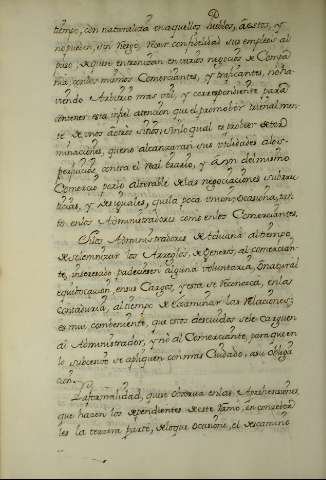 tiempo, con naturaleza en aquellos Pueblos, à estos, y
no pueden, sin riesgo, llevar con fidelidad sus empleos al
paso, de que se entrometan en varios negocios de Compa-
ñia, con los mismos Comerciantes, y traficantes, no ha-
viendo Arbitrio mas util, y correspondiente para
contener esta infiel atencion que el promober trienalmen-
te de unos à otros sitios; sin lo qual
minaciones, que no alcanzaran sus utilidades a los
perjuicios contra el real erario, y aun del mismo
Comercio por lo alterable de las negociaciones
y desiguales, que la poca union, ocasiona, tan-
to en los Administradores como en los Comerciantes.
Si los Administradores de Aduana al tiempo
de solemnizar los Arreglos, de Generos, al comercian-
te, interesado padeciesen alguna voluntaria, ò natural
equivocacion en sus Cargos, y esta se reconozca, en las
contadurias, al tiempo de examinar las relaciones;
es mui conbeniente, que estos descuidos se le carguen
al Administrador, y nò al Comerciante, para que en
lo subcesibo se apliquen con más Cuidado, a su obliga-
cion.
La formalidad, que se observa en las Aprehensiones
que hacen los dependientes de este ramo, en consebar-
les la tercera parte, de lo que ocasione, el descamino